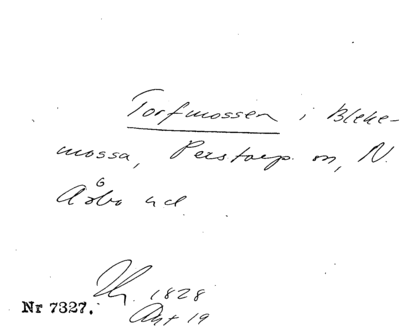 Torfmossen i Bleke-
mossa, Perstorp sn, N.
Åsbo hd.
1828
Nr 7327. Ant 19